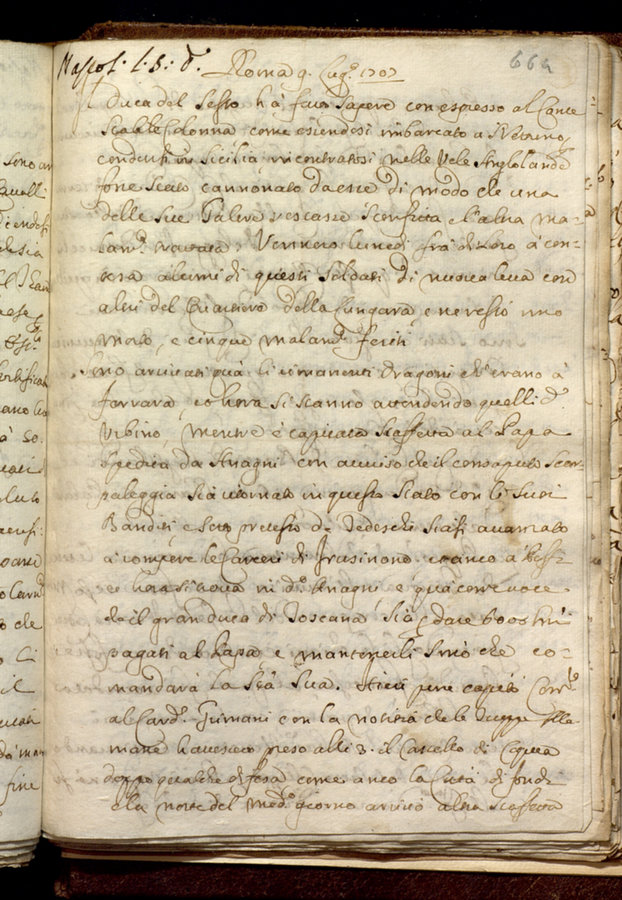 Napol: l. 8: d.
Roma 9. Lug.º 1707
664
Il Duca del Sesto hà fatto sapere con espresso al Conte
Stabbile Colonna come essendosi imbarcato a
condursi in Sicilia incontratosi nelle Vele Anglolande
fone stato cannonato da esse di modo che una
delle sue Galere restasse sconfitta e l'altra ma=
lam.te trattata, Vennero lunedì frà di loro à con=
tesa alcuni di questi soldati di nuova leva con
altri del Quartiero della Lungara, e ne restò uno
morto, e cinque malam.te feriti
Sono arrivati quà li rimanenti Dragoni ch'erano à
Ferrara, et hora si stanno attendendo quelli d'
Urbino, mentre è capitata staffetta al Papa
spedita da Anagni con avviso che il consaputo Scar=
paleggia sia ritornato in questo stato con li suoi
Banditi, e sotto pretesto de Tedeschi siasi avanzato
à rompere le Carceri di Frusinone
e hora si trova in d.º Anagni, e quà corre voce
che il gran duca di Toscana sia p dare 6000 h.ni
pagati al Papa, e mantenerli sino che co=
mandarà la S.tà Sua. Hieri pure capitò Corr.e
al Card. Grimani con la notitia che le Truppe Alle=
mane havessero preso alli 3. il Castello di Capua
doppo qualche difesa come anco la Città di fondi
e la notte del med.º giorno arrivò altra staffetta